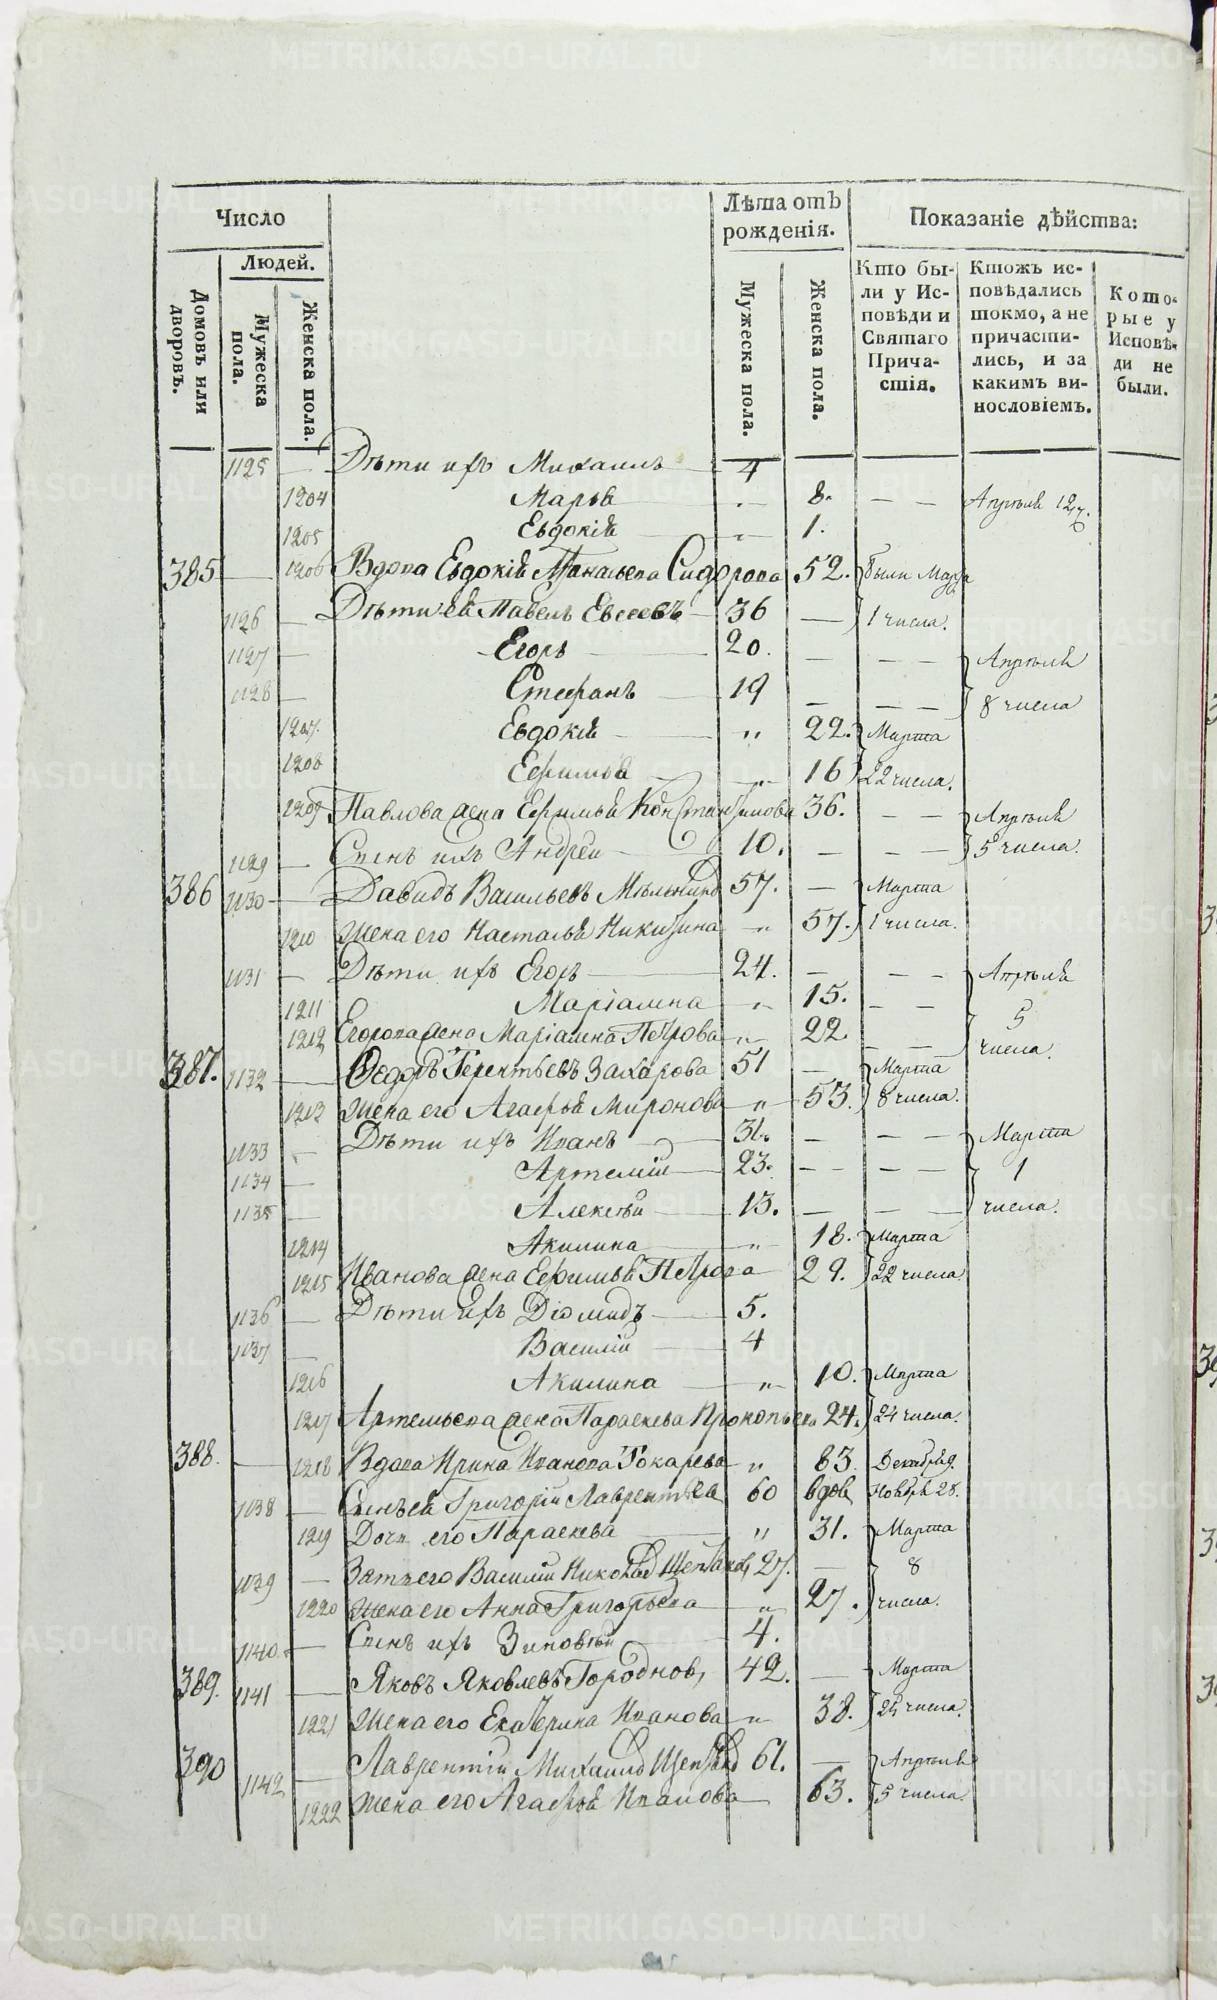 Число
Лѣта отъ рожденія.
Показаніе дѣйства:
Домовъ или дворовъ.
Людей.
Мужеска пола.
Женска пола.
Мужеска пола.
Женска пола.
Кто бы-
ли у Ис-
повѣди и
Святаго
Прича-
стія.
Ктожъ ис-
повѣдались
токмо, а не
причасти-
лись, и за
какимъ ви-
нословіемъ.
Кото-
рые у
Исповѣ-
ди не
были.
1125 — Дѣти ихъ Михаилъ — 4
1204 Марья — 8. — — Апрѣля 12
1205 Евдокія — „ 1.
385 — 1206 Вдова Евдокія Сидорова 52. были Марта
1126 — Дѣти ея Павелъ Евсеевъ — 36 — 1 числа.
1127 — Егоръ — 20. — — — Апрѣля
1128 — Стефанъ — 19 — — — 8 числа
1207 Евдокія — „ 22. Марта
1208 Ефимья — „ 16 22 числа.
1209 Павлова жена Ефимья Константинова 36. — — Апрѣля
1129 — Сынъ ихъ Андрей — 10. — — — 5 числа.
386 1130 — Давидъ Васильевъ 57. — Марта
1210 Жена его Насталья Никитина „ 57. 1 числа.
1131 — Дѣти ихъ Егоръ — 24. — — — Апрѣля
1211 Маріамна „ 15. — — 5
1212 Егорова жена Маріамна Петрова „ 22 — — числа.
387. 1132 — Федоръ Терентьевъ Захарова 51 — Марта
1213 Жена его Агафья Миронова — „ — 53. 8 числа.
1133 — Дѣти ихъ Иванъ — 31. — — — Марта
1134 — Артемій — 23. — — — — 1
1135 — Алексѣй — 13. — — — числа.
1214 Акилина — „ 18. Марта
1215 Иванова жена Ефимья Петрова 29. 22 числа.
1136 — Дѣти ихъ Діомидъ — 5.
1137 — Василій — 4
1216 Акилина — „ 10. Марта
1217 Артемьева жена Параскева Прокопьева 24. 24 числа.
388. — 1218 Вдова Ирина Иванова Токарева — „ 83. Декабря 9.
1038 — Сынъ ея Григорій Лаврентьев 60 вдов. Ноября 28.
1219 Дочь его Параскева — „ 31. Марта
1039 — Зять его Василій 27. — 8
1220 Жена его Анна Григорьева — „ 27. числа.
1140 — Сынъ ихъ Зиновій — 4.
389. 1141 — Яковъ Яковлевъ Городнов, 42. — Марта
1221 Жена его Екатерина Иванова — „ 38. числа.
390 1142 — Лаврентій Михаилов 61. — Апрѣля
1222 Жена его Агафья Иванова — 63. 5 числа.
METRIKI.GASO-URAL.RU